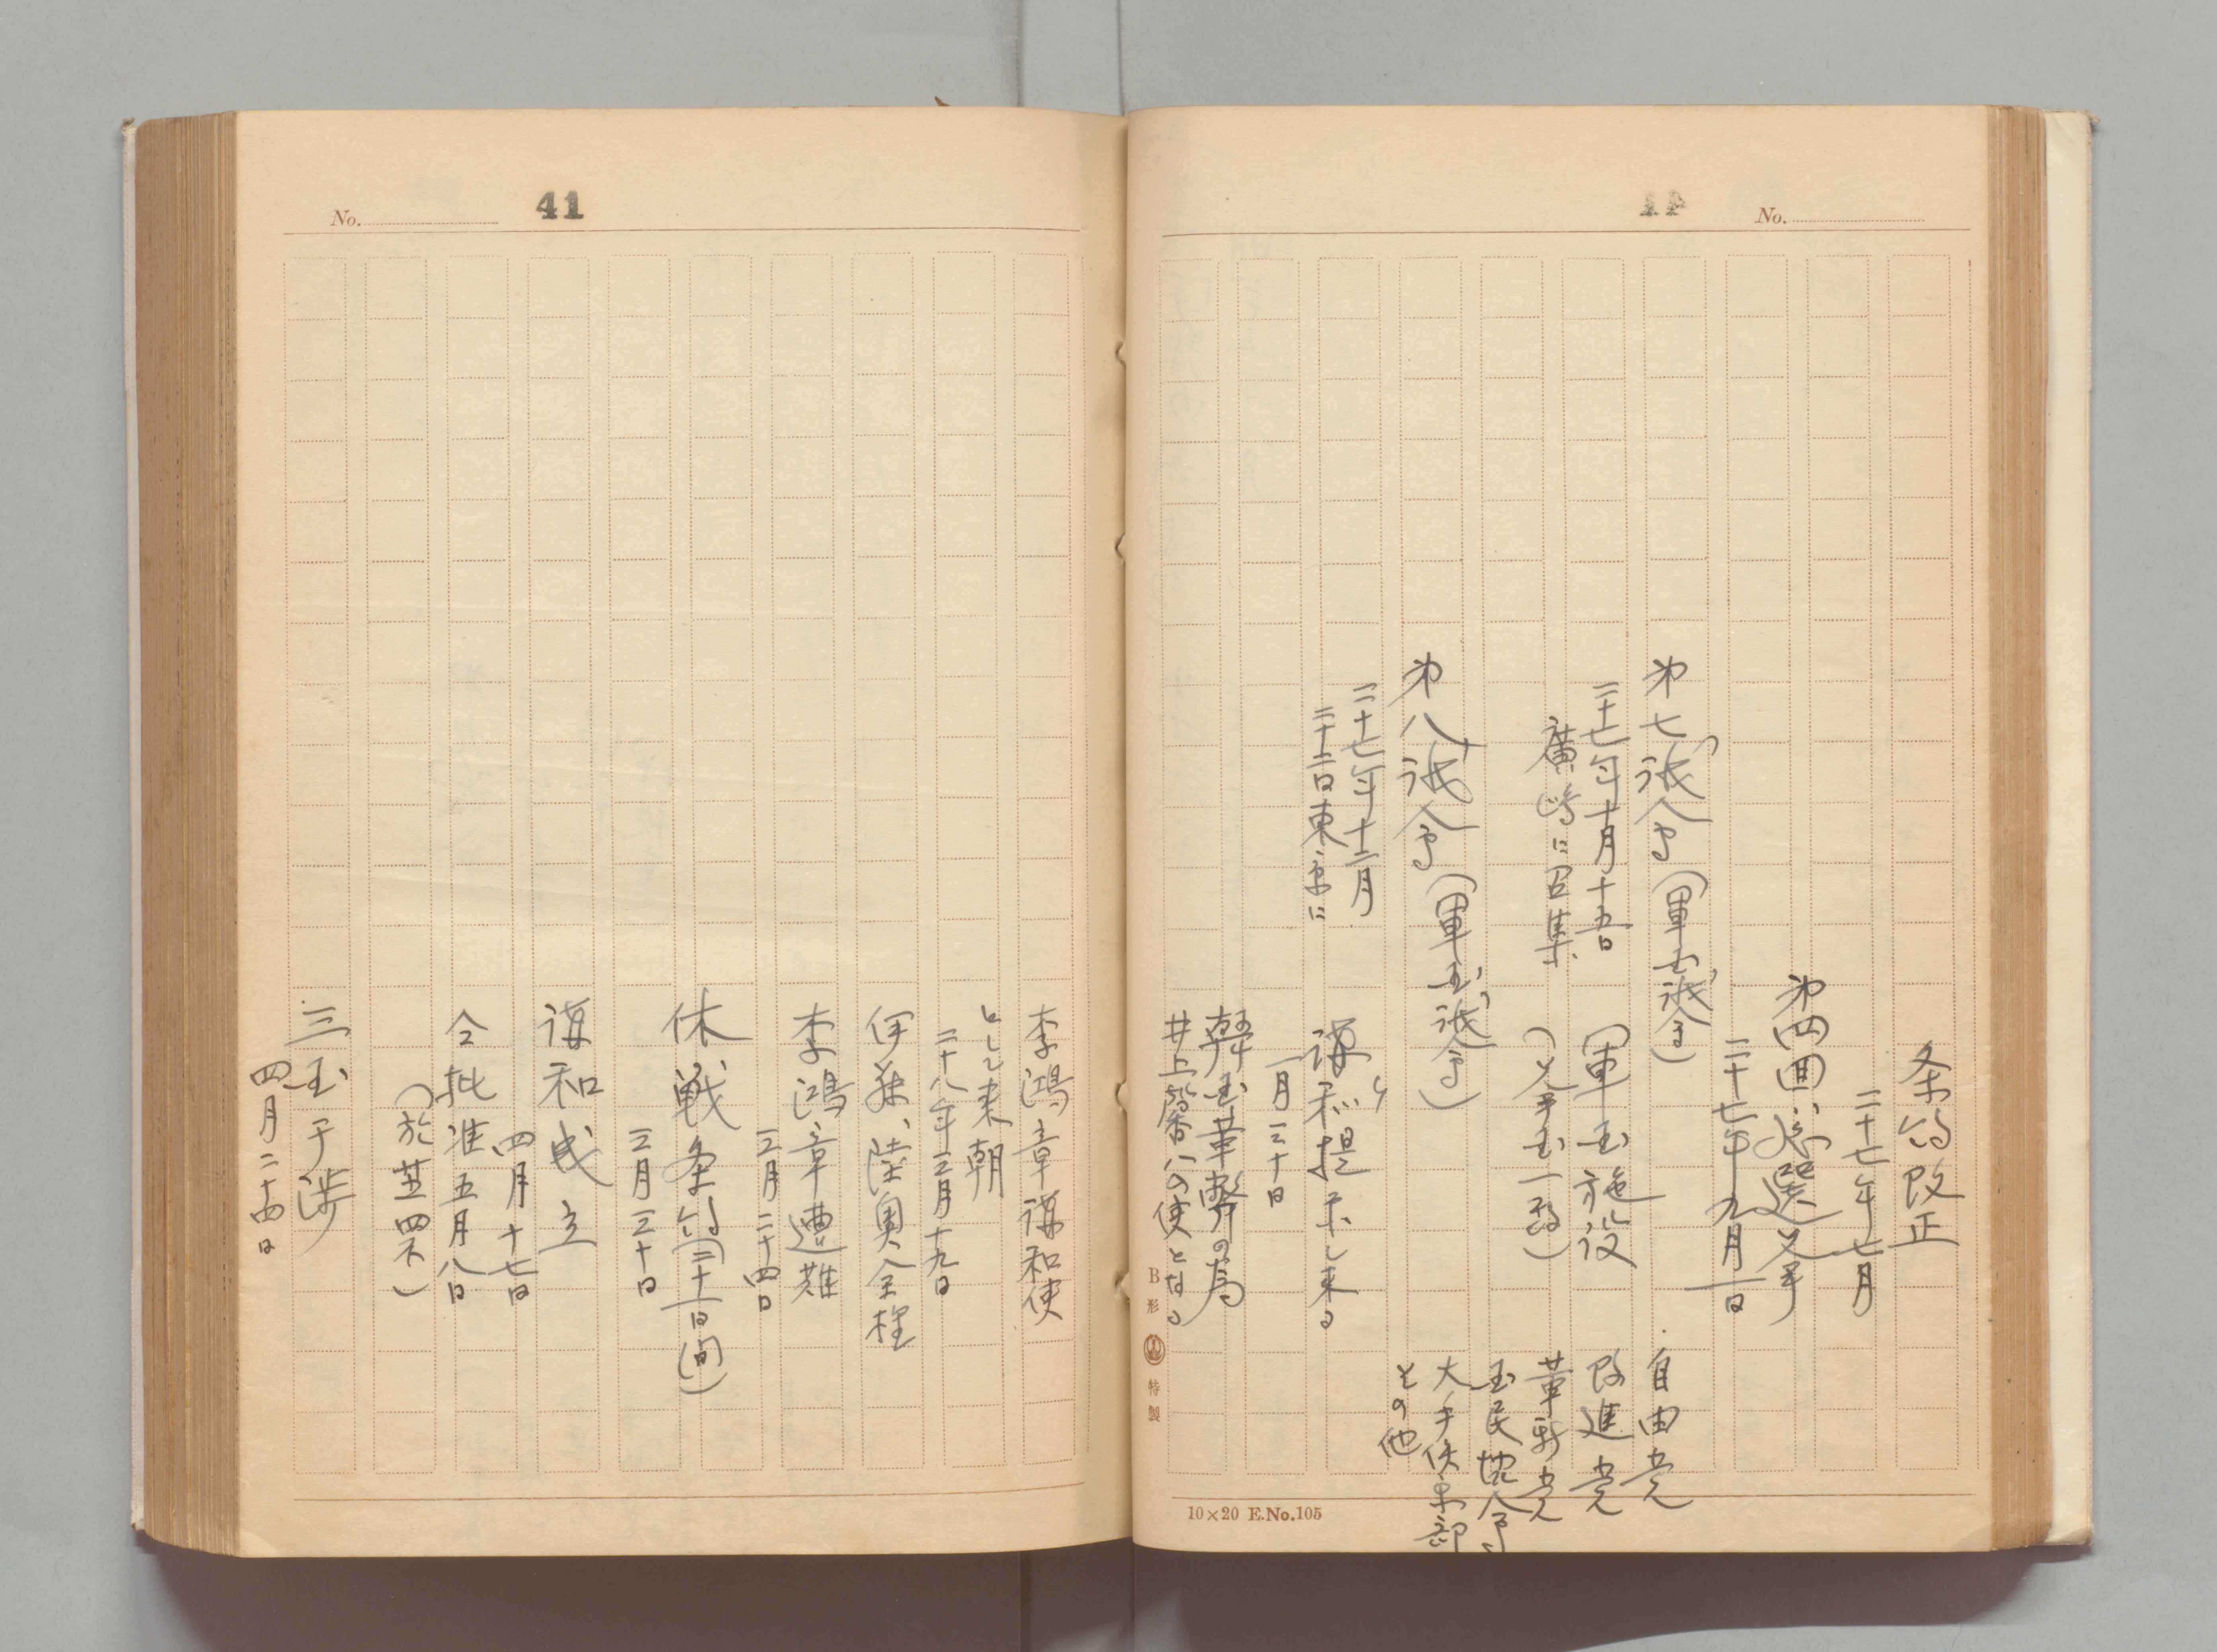 No.
条約改正
二十七年七月
第四回総選挙
二十七年九月一日
第七議会(軍国議会)
二十七年十月十五日
廣嶋に召集
軍国施設
(挙国一致)
自由党
改進党
革新党
国民協会
大手倶楽部
その他
第八議会(軍国議会)
二十七年十二月
二十二日東京に
講和提示し来る
一月三十日
韓国革弊の為
井上馨への使となる
B形
特製
10×20 E.No.105
41
No.
李鴻章講和使
として来朝
二十八年三月十九日
伊藤、陸奥全権
李鴻章遭難
三月二十四日
休戦条約(二十一日間)
三月三十日
講和成立
四月十七日
仝批准五月八日
(於芝罘)
三国干渉
四月二十四日